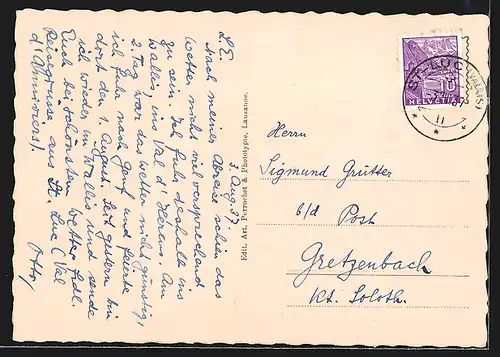 3. Aug. 37.
L.E.
Nach meiner Abreise schien das
Wetter nicht vielversprechend
zu sein. Ich fuhr deshalb ins
Wallis, ins Val d'Herens. Am
2. Tag war das Wetter nicht günstig,
ich fuhr nach Genf und feierte
dort den 1. August. Seit gestern bin
ich wieder im Wallis und sende
Euch bei schönstem Wetter herzl.
Reisegrüsse aus St. Luc (Val
d'Anniviers).
Otto
Edit. Art. Perrochet & Phototypie, Lausanne.
ST-LUC (VALAIS)
HELVETIA
10
Herrn
Sigmund Grütter
b/d Post
Gretzenbach
Kt. Soloth.